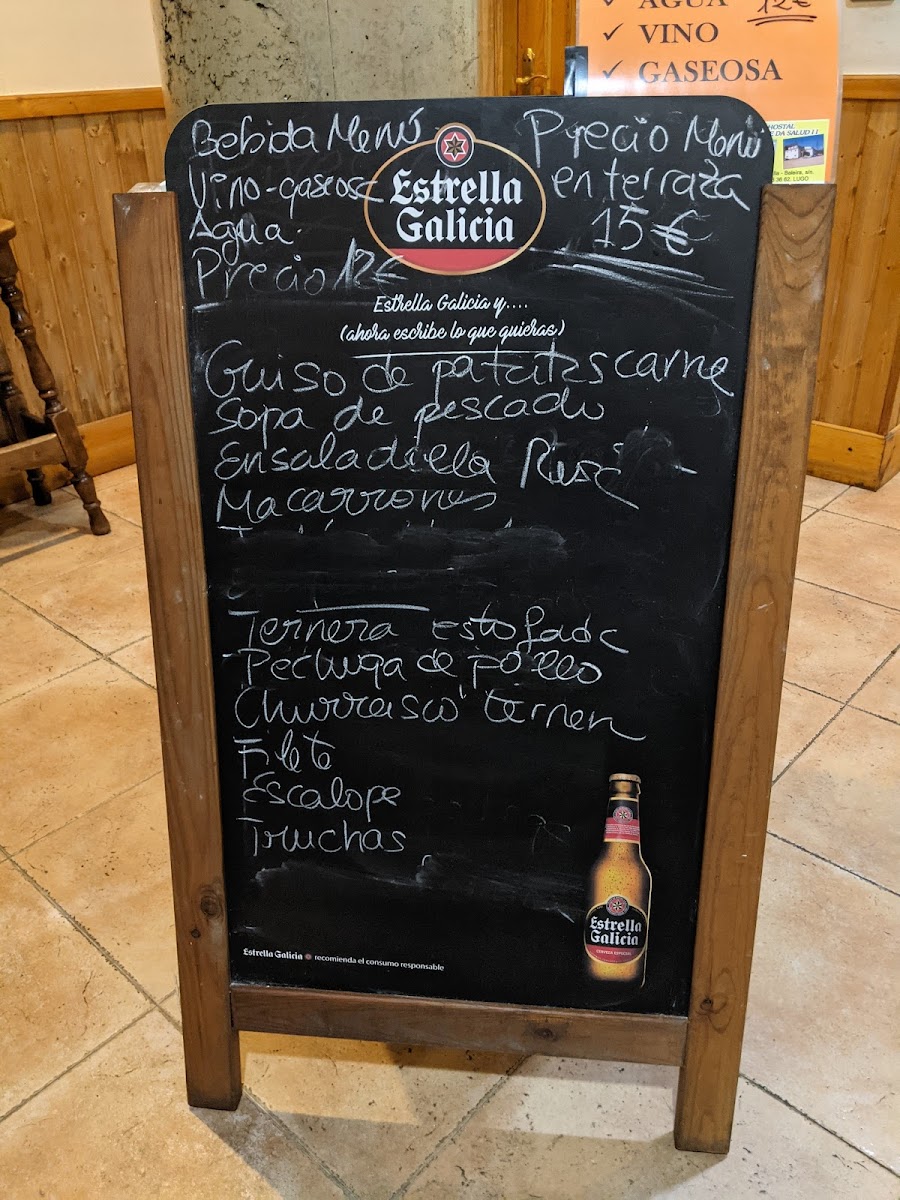 ✓ AGUA 12€
✓ VINO
✓ GASEOSA
HOSTAL
DA SALUD
LUGO
Bebida Menú
Vino-gaseosa
Agua.
Precio 12€
Precio Menú
en terraza
15€
Estrella
Galicia
Estrella Galicia y....
(ahora escribe lo que quieras)
Guiso de patatas carne
Sopa de pescado
Ensaladilla Rusa
Macarrones
Ternera estofada
Pechuga de pollo
Churrasco ternera
Filete
Escalope
Truchas
Estrella
Galicia
CERVEZA ESPECIAL
Estrella Galicia recomienda el consumo responsable